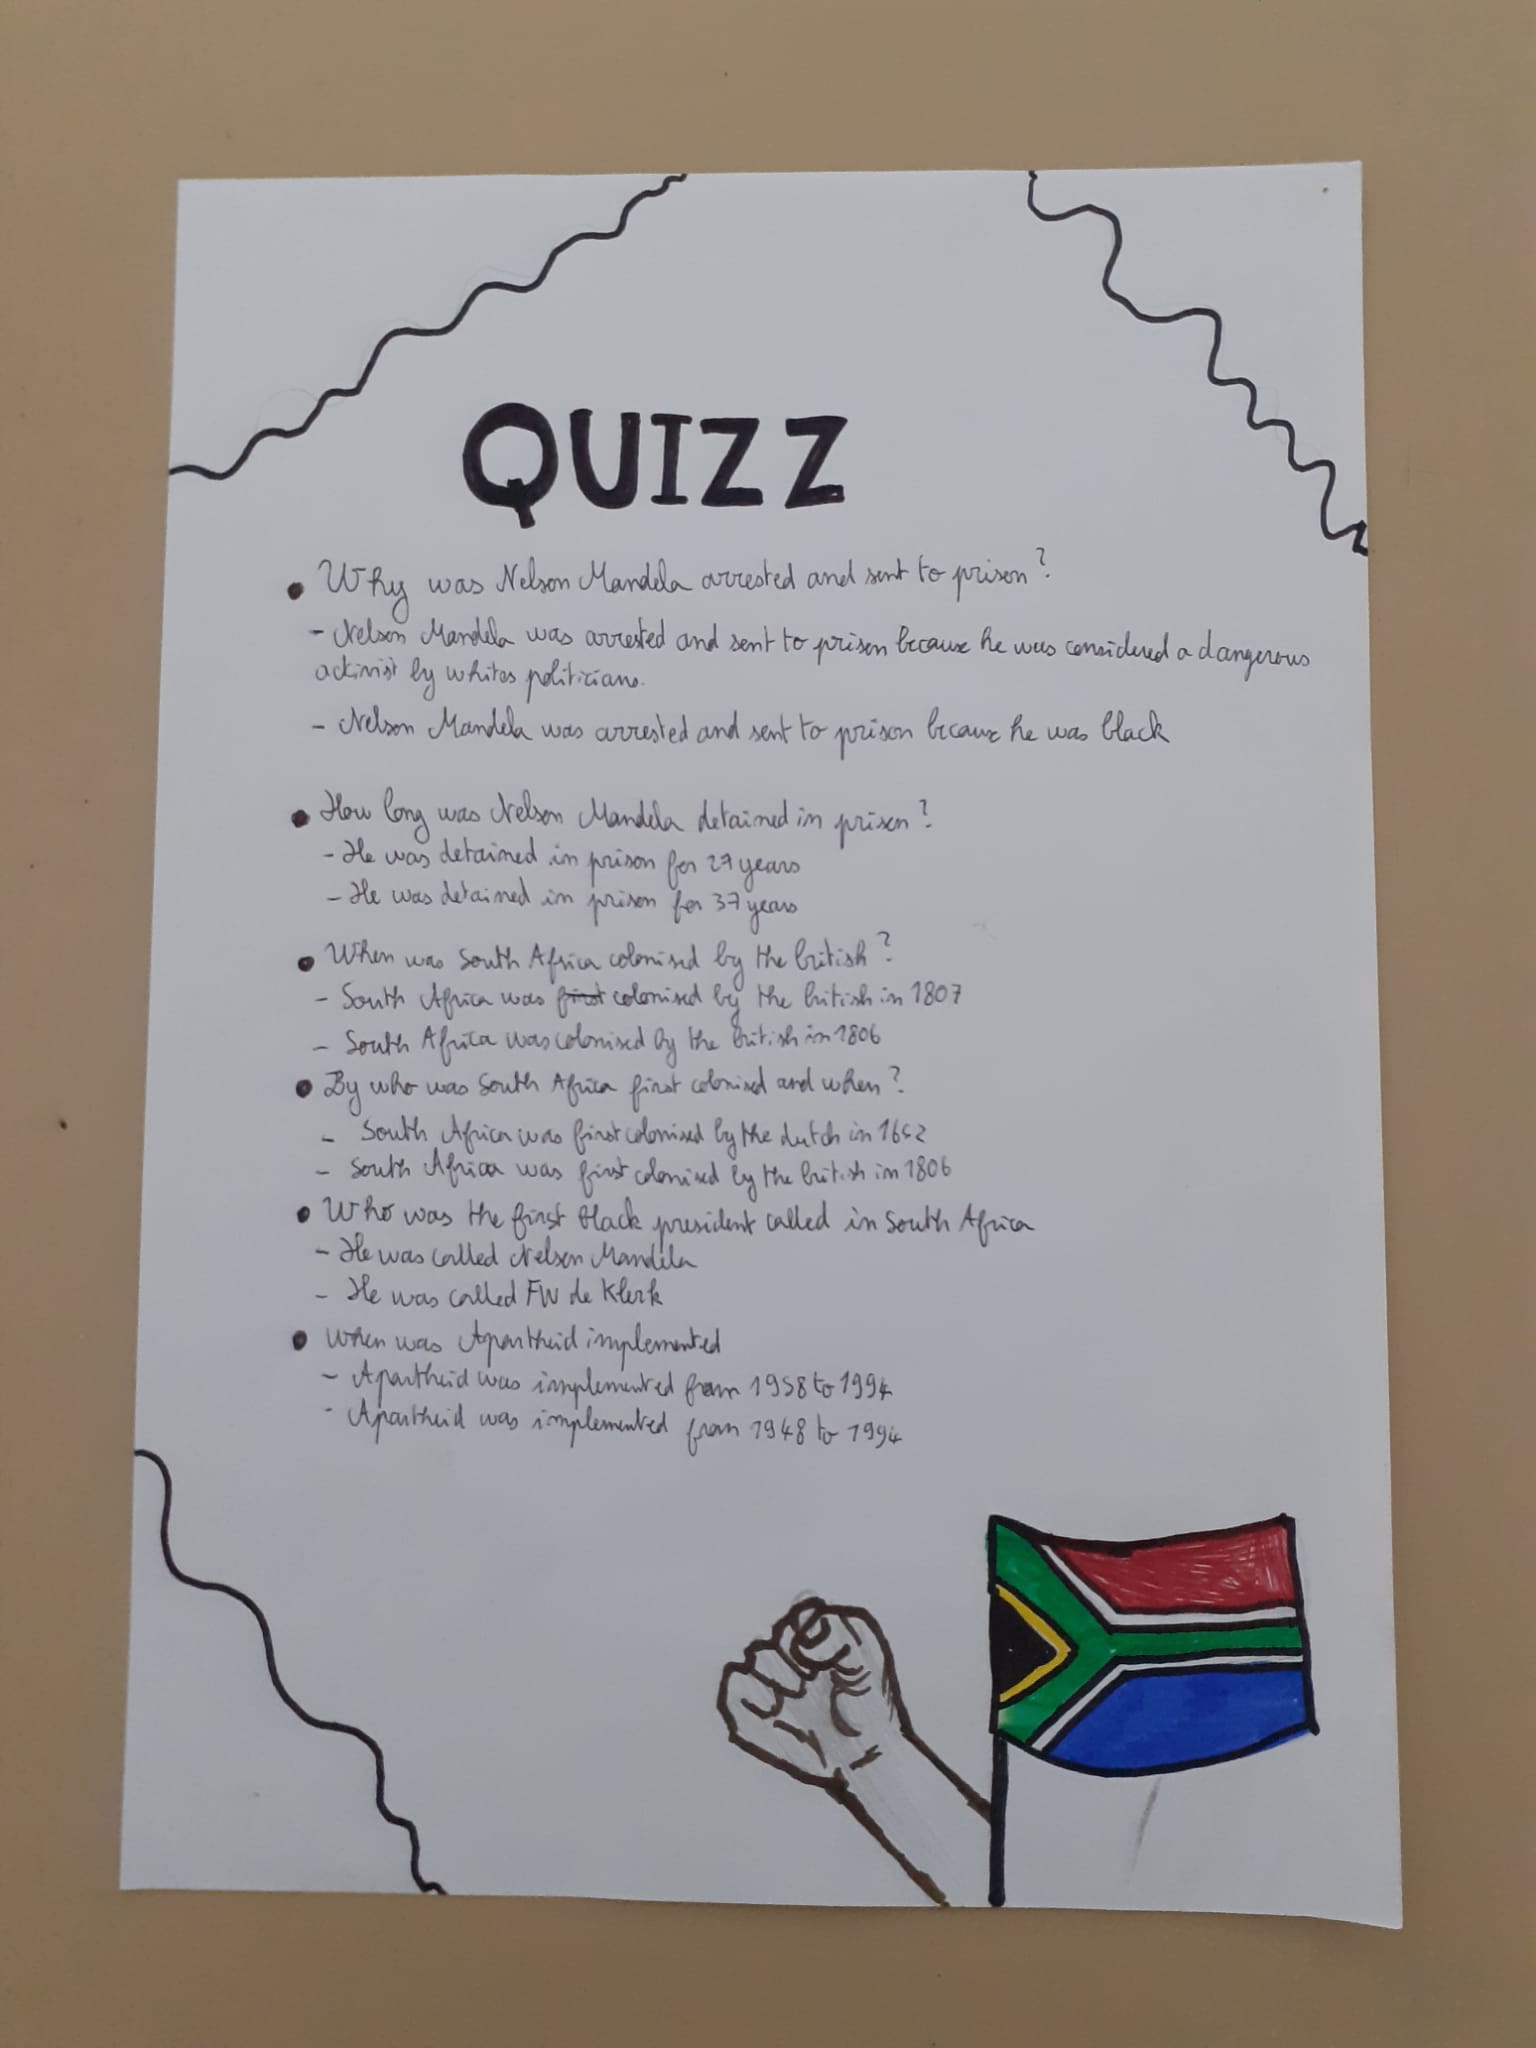 QUIZZ
• Why was Nelson Mandela arrested and sent to prison?
- Nelson Mandela was arrested and sent to prison because he was considered a dangerous
activist by whites politicians.
- Nelson Mandela was arrested and sent to prison because he was black
• How long was Nelson Mandela detained in prison?
- He was detained in prison for 27 years
- He was detained in prison for 37 years
• When was South Africa colonised by the british?
- South Africa was first colonised by the british in 1807
- South Africa was colonised by the british in 1806
• By who was South Africa first colonised and when?
- South Africa was first colonised by the dutch in 1652
- South Africa was first colonised by the british in 1806
• Who was the first black president called in South Africa
- He was called Nelson Mandela
- He was called FW de Klerk
• When was Apartheid implemented
- Apartheid was implemented from 1958 to 1994
- Apartheid was implemented from 1948 to 1994